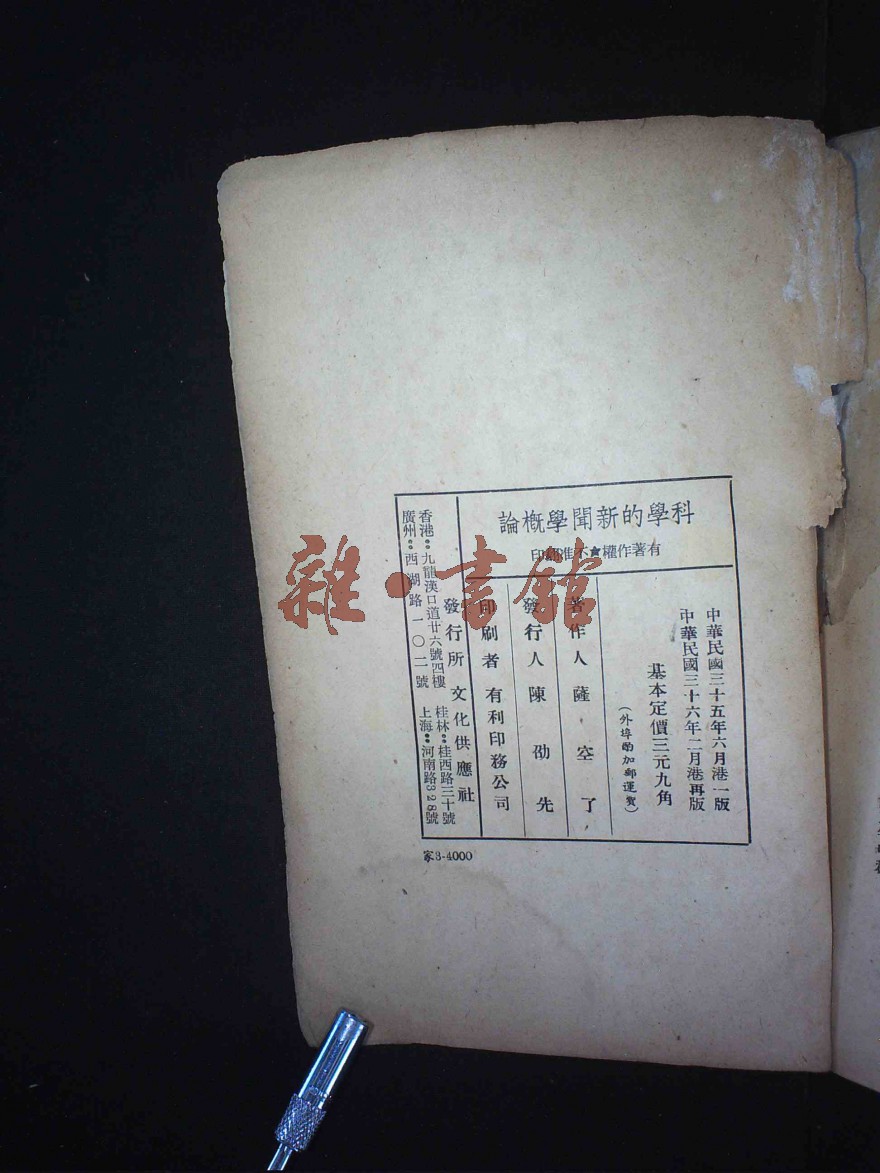 科學的新聞學概論
有著作權★不准翻印
中華民國三十五年六月港一版
中華民國三十六年二月港再版
基本定價三元九角
（外埠酌加郵運費）
著作人 薩空了
發行人 陳劭先
印刷者 有利印務公司
發行所 文化供應社
香港：九龍漢口道廿六號四樓 桂林：桂西路三十號
廣州：西湖路一〇二號 上海：河南路328號
家3-4000
雜·書館